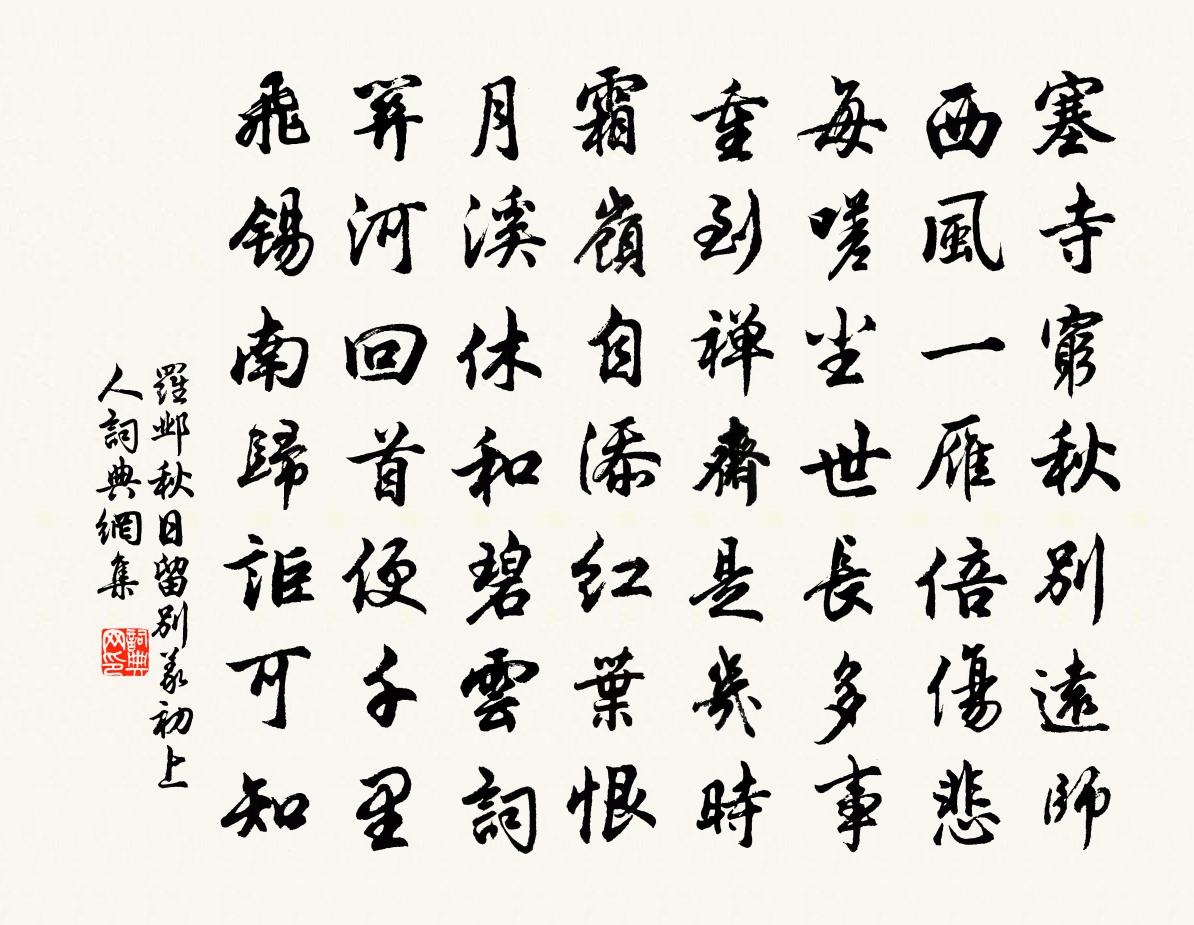 塞寺窮秋別遠師
西風一雁倍傷悲
每嗟坐世長多事
重到禅齋是幾時
霜嶺自添紅葉恨
月溪休和碧雲詞
關河回首便千里
飛錫南歸詎可知
羅邺秋日留別義初上
人詞典網集
詞典
网印